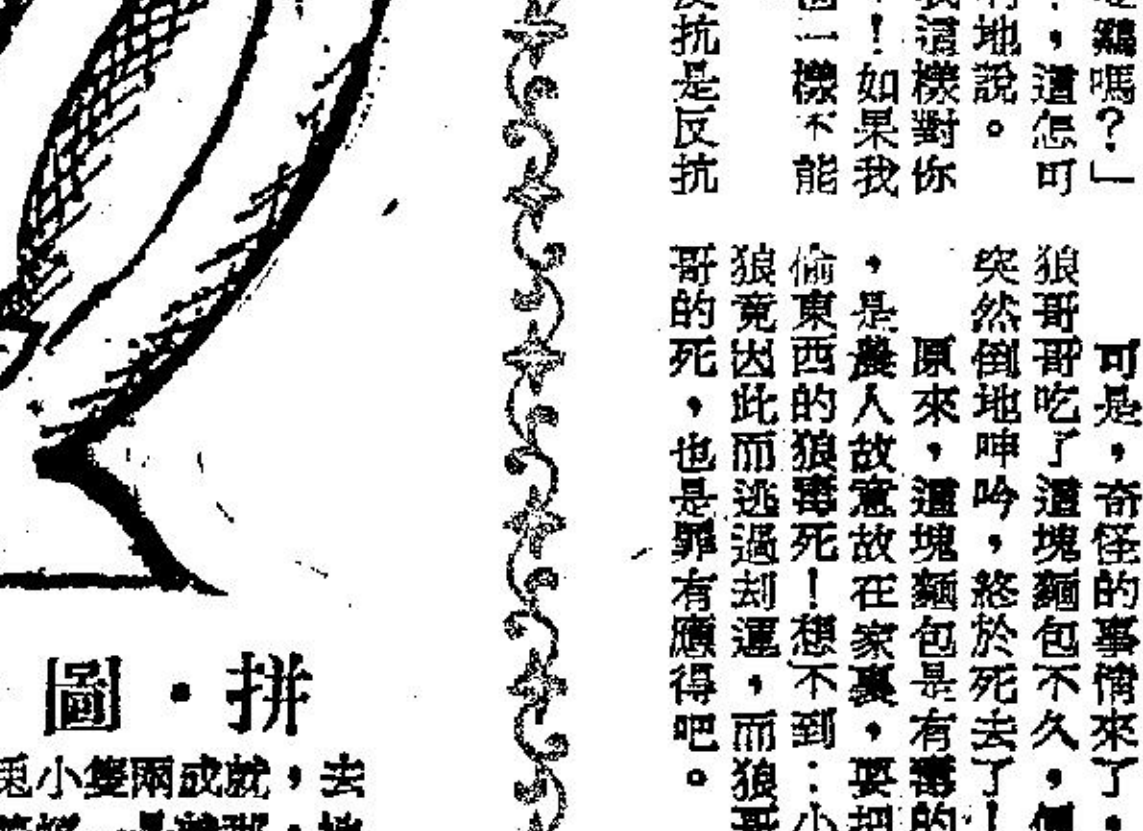 嗎?」
,這怎可
地說。
這樣對你
!如果我
一樣不能
抗是反抗
可是,奇怪的事情來了,
狼哥哥吃了這塊麵包不久,便
突然倒地呻吟,終於死去了!
原來,這塊麵包是有毒的
,是農人故意放在家裏,要把
偷東西的狼毒死!想不到:小
狼竟因此而逃過劫運,而狼哥
哥的死,也是罪有應得吧。
拼・圖
去,就成兩隻小兔